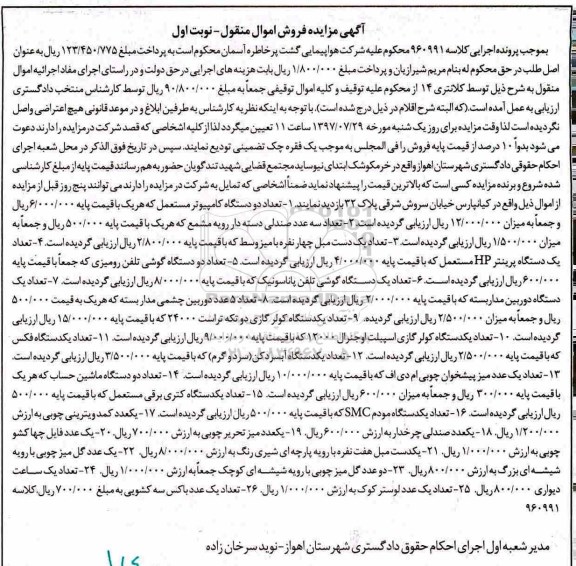 آگهی مزایده فروش اموال منقول - نوبت اول
بموجب پرونده اجرایی کلاسه ۹۶۰۹۹۱ محکوم علیه شرکت هواپیمایی گشت پر خاطره آسمان محکوم است به پرداخت مبلغ ۱۲۳/۴۵۰/۷۷۵ ریال به عنوان
اصل طلب در حق محکوم له بنام مریم شیرازیان و پرداخت مبلغ ۱/۸۰۰/۰۰۰ ریال بابت هزینه های اجرایی در حق دولت و در راستای اجرای مفاد اجرائیه اموال
منقول به شرح ذیل توسط کلانتری ۱۴ از محکوم علیه توقیف و کلیه اموال توقیفی جمعاً به مبلغ ۹۰/۸۰۰/۰۰۰ ریال توسط کارشناس منتخب دادگستری
ارزیابی به عمل آمده است.(که البته شرح اقلام در ذیل درج شده است). با توجه به اینکه نظریه کارشناس به طرفین ابلاغ و در موعد قانونی هیچ اعتراضی واصل
نگردیده است لذا وقت مزایده برای روز یک شنبه مورخه ۱۳۹۷/۰۷/۲۹ ساعت ۱۱ تعیین میگردد لذا از کلیه اشخاصی که قصد شرکت در مزایده را دارند دعوت
می شود بدواً ۱۰ درصد از قیمت پایه فروش را فی المجلس به موجب یک فقره چک تضمینی تودیع نمایند. سپس در تاریخ فوق الذکر در محل شعبه اجرای
احکام حقوقی دادگستری شهرستان اهواز واقع در خرمکوشک ابتدای نیوساید مجتمع قضایی شهید تندگویان حضور به هم رسانند قیمت پایه از مبلغ کارشناسی
شده شروع و برنده مزایده کسی است که بالاترین قیمت را پیشنهاد نماید ضمناً اشخاصی که تمایل به شرکت در مزایده را دارند می توانند پنج روز قبل از مزایده
از اموال ذیل واقع در کیانپارس خیابان سروش شرقی پلاک ۳۲ بازدید نمایند. ۱- تعداد دو دستگاه کامپیوتر مستعمل که هر یک با قیمت پایه ۶/۰۰۰/۰۰۰ ریال
و جمعاً به میزان ۱۲/۰۰۰/۰۰۰ ریال ارزیابی گردیده است. ۲- تعداد سه عدد صندلی دسته دار رویه مشمع که هر یک با قیمت پایه ۵۰۰/۰۰۰ ریال و جمعاً به
میزان ۱/۵۰۰/۰۰۰ ریال ارزیابی گردیده است. ۳- تعداد یک دست مبل چهار نفره با میز وسط که با قیمت پایه ۲/۸۰۰/۰۰۰ ریال ارزیابی گردیده است. ۴- تعداد
یک دستگاه پرینتر HP مستعمل که با قیمت پایه ۴/۰۰۰/۰۰۰ ریال ارزیابی گردیده است. ۵- تعداد دو دستگاه گوشی تلفن رومیزی که جمعاً با قیمت پایه
۶۰۰/۰۰۰ ریال ارزیابی گردیده است. ۶- تعداد یک دستگاه گوشی تلفن پاناسونیک که با قیمت پایه ۸/۰۰۰/۰۰۰ ریال ارزیابی گردیده است. ۷- تعداد یک
دستگاه دوربین مداربسته که با قیمت پایه ۲/۰۰۰/۰۰۰ ریال ارزیابی گردیده است. ۸- تعداد ۵ عدد دوربین چشمی مدار بسته که هر یک به قیمت ۵۰۰/۰۰۰
ریال و جمعاً به میزان ۲/۵۰۰/۰۰۰ ریال ارزیابی گردیده. ۹- تعداد یک دستگاه کولر گازی دو تکه تراست ۲۴۰۰۰ که با قیمت پایه ۱۵/۰۰۰/۰۰۰ ریال ارزیابی
گردیده است. ۱۰- تعداد یکدستگاه کولر گازی اسپیلت اوجنرال ۱۲۰۰۰ که با قیمت پایه ۹/۰۰۰/۰۰۰ ریال ارزیابی گردیده است. ۱۱- تعداد یکدستگاه فکس
که با قیمت پایه ۲/۵۰۰/۰۰۰ ریال ارزیابی گردیده است. ۱۲- تعداد یکدستگاه آبسردکن (سرد و گرم) که با قیمت پایه ۳/۵۰۰/۰۰۰ ریال ارزیابی گردیده است.
۱۳- تعداد یک عدد میز پیشخوان چوبی ام دی اف که با قیمت پایه ۱۰/۰۰۰/۰۰۰ ریال ارزیابی گردیده است. ۱۴- تعداد دو دستگاه ماشین حساب که هر یک
با قیمت پایه ۳۰۰/۰۰۰ ریال و جمعاً به میزان ۶۰۰/۰۰۰ ریال ارزیابی گردیده است. ۱۵- تعداد یکدستگاه کتری برقی مستعمل که با قیمت پایه ۵۰۰/۰۰۰
ریال ارزیابی گردیده است. ۱۶- تعداد یکدستگاه مودم SMC که با قیمت پایه ۵۰۰/۰۰۰ ریال ارزیابی گردیده است. ۱۷- یکعدد کمد ویترینی چوبی به ارزش
۱/۲۰۰/۰۰۰ ریال. ۱۸- یکعدد صندلی چرخدار به ارزش ۶۰۰/۰۰۰ ریال. ۱۹- یکعدد میز تحریر چوبی به ارزش ۷۰۰/۰۰۰ ریال. ۲۰- یک عدد فایل چهار کشو
چوبی به ارزش ۱/۰۰۰/۰۰۰ ریال. ۲۱- یکدست مبل هفت نفره با رویه پارچه ای شیری رنگ به ارزش ۸/۰۰۰/۰۰۰ ریال. ۲۲- یک عدد گل میز چوبی با رویه
شیشه ای بزرگ به ارزش ۸۰۰/۰۰۰ ریال. ۲۳- دو عدد گل میز چوبی با رویه شیشه ای کوچک جمعاً به ارزش ۱/۰۰۰/۰۰۰ ریال. ۲۴- تعداد یک ساعت
دیواری ۸۰۰/۰۰۰ ریال. ۲۵- تعداد یک عدد لوستر کوک به ارزش ۱/۰۰۰/۰۰۰ ریال. ۲۶- تعداد یک عدد باکس سه کشویی به مبلغ ۷۰۰/۰۰۰ ریال. کلاسه
۹۶۰۹۹۱
مدیر شعبه اول اجرای احکام حقوق دادگستری شهرستان اهواز - نوید سرخان زاده